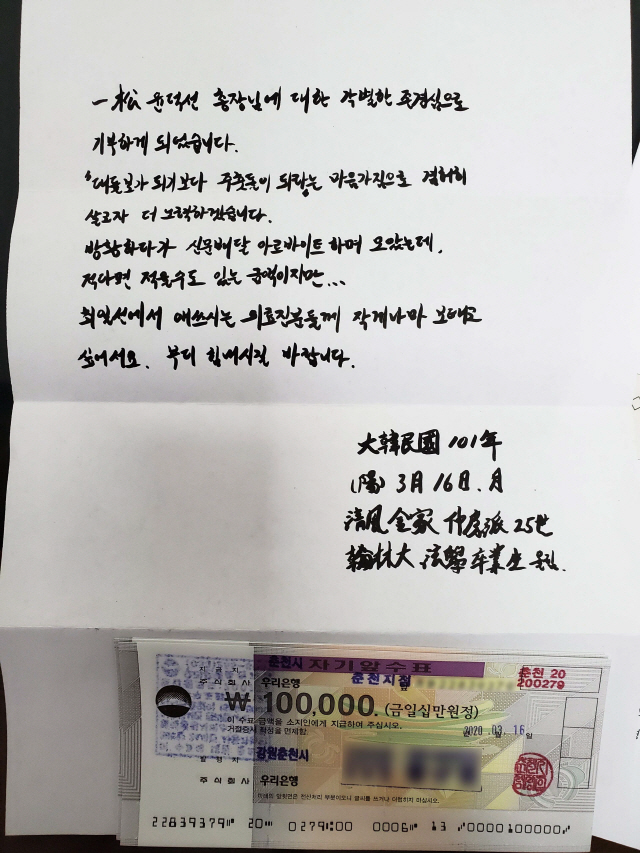 一松 윤덕선 총장님에 대한 각별한 존경심으로
기부하게 되었습니다.
'대들보가 되기보다 주춧돌이 되라'는 마음가짐으로 겸허히
살고자 더 노력하겠습니다.
방황하다가 신문배달 아르바이트하며 모았는데,
적다면 적을수도 있는 금액이지만...
최일선에서 애쓰시는 의료진분들께 작게나마 보태고
싶어서요. 부디 힘내시길 바랍니다.
大韓民國 101年
(陽) 3月 16日. 月
淸風金家 仲房派 25世
翰林大 法學 卒業生 올림.
춘천시 자기앞수표
지급지
주식회사 우리은행 춘천지점 앞
춘천 20
200279
₩ 100,000. (금일십만원정)
이 수표 금액을 소지인에게 지급하여 주십시오.
거절증서 작성을 면제함.
2020 .03. 16 일
발행지 강원춘천시
주식회사 우리은행
아래의 앞뒷면은 전산처리 부분이오니 글씨를 쓰거나 더럽히지 마십시오.
22839379 20 0279 00 0006 13 0000100000